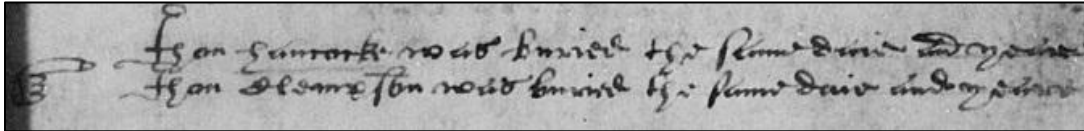 Jhon Hancocke was buried the same daie and yeare
Jhon Clempson was buried the same daie and yeare